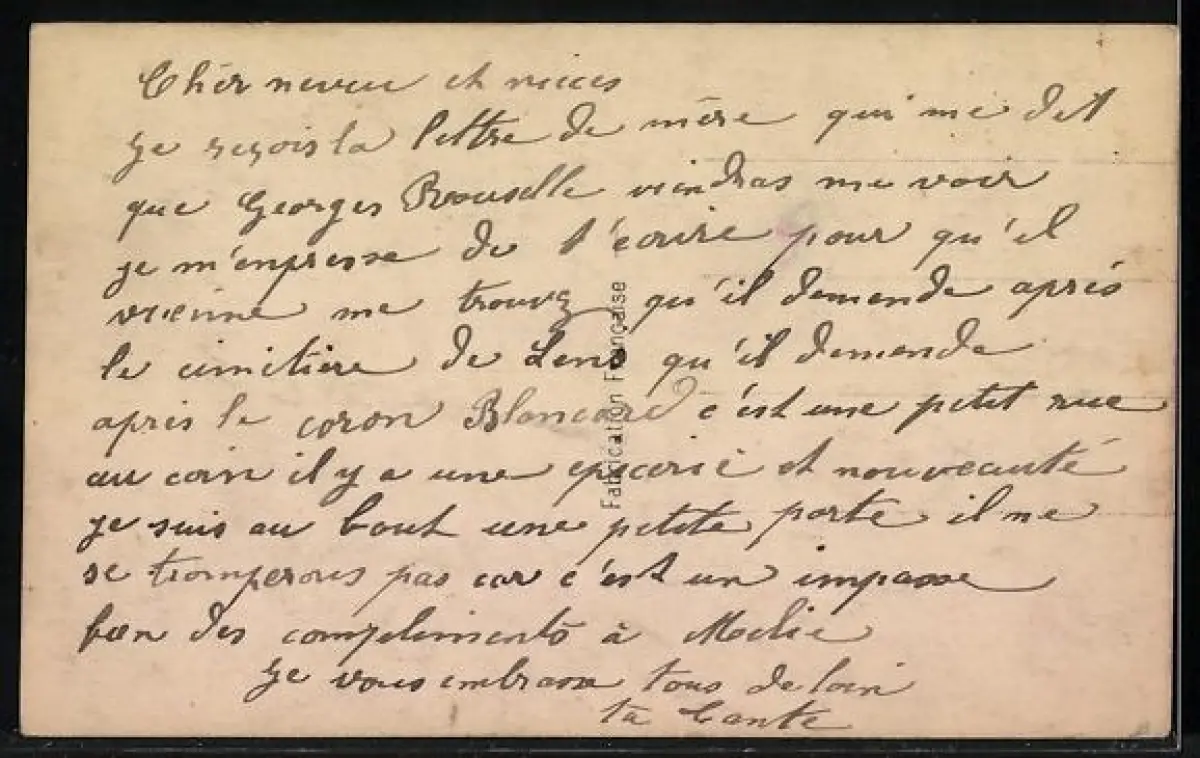 Chèr neveu et nieces
Je reçois la lettre de mère qui me dit
que Georges Rouselle viendras me voir
je m'enpresse de t'ecrire pour qu'il
vienne me trouvez qu'il demende après
le cimitière de Lens qu'il demende
après le coron Blancard c'est une petit rue
au coin il y a une epicerie et nouveauté
je suis au bout une petite porte il ne
se tromperous pas car c'est un impasse
bien des compliments à Melie
Je vous embrasse tous de loin
ta tante
Fabrication Française